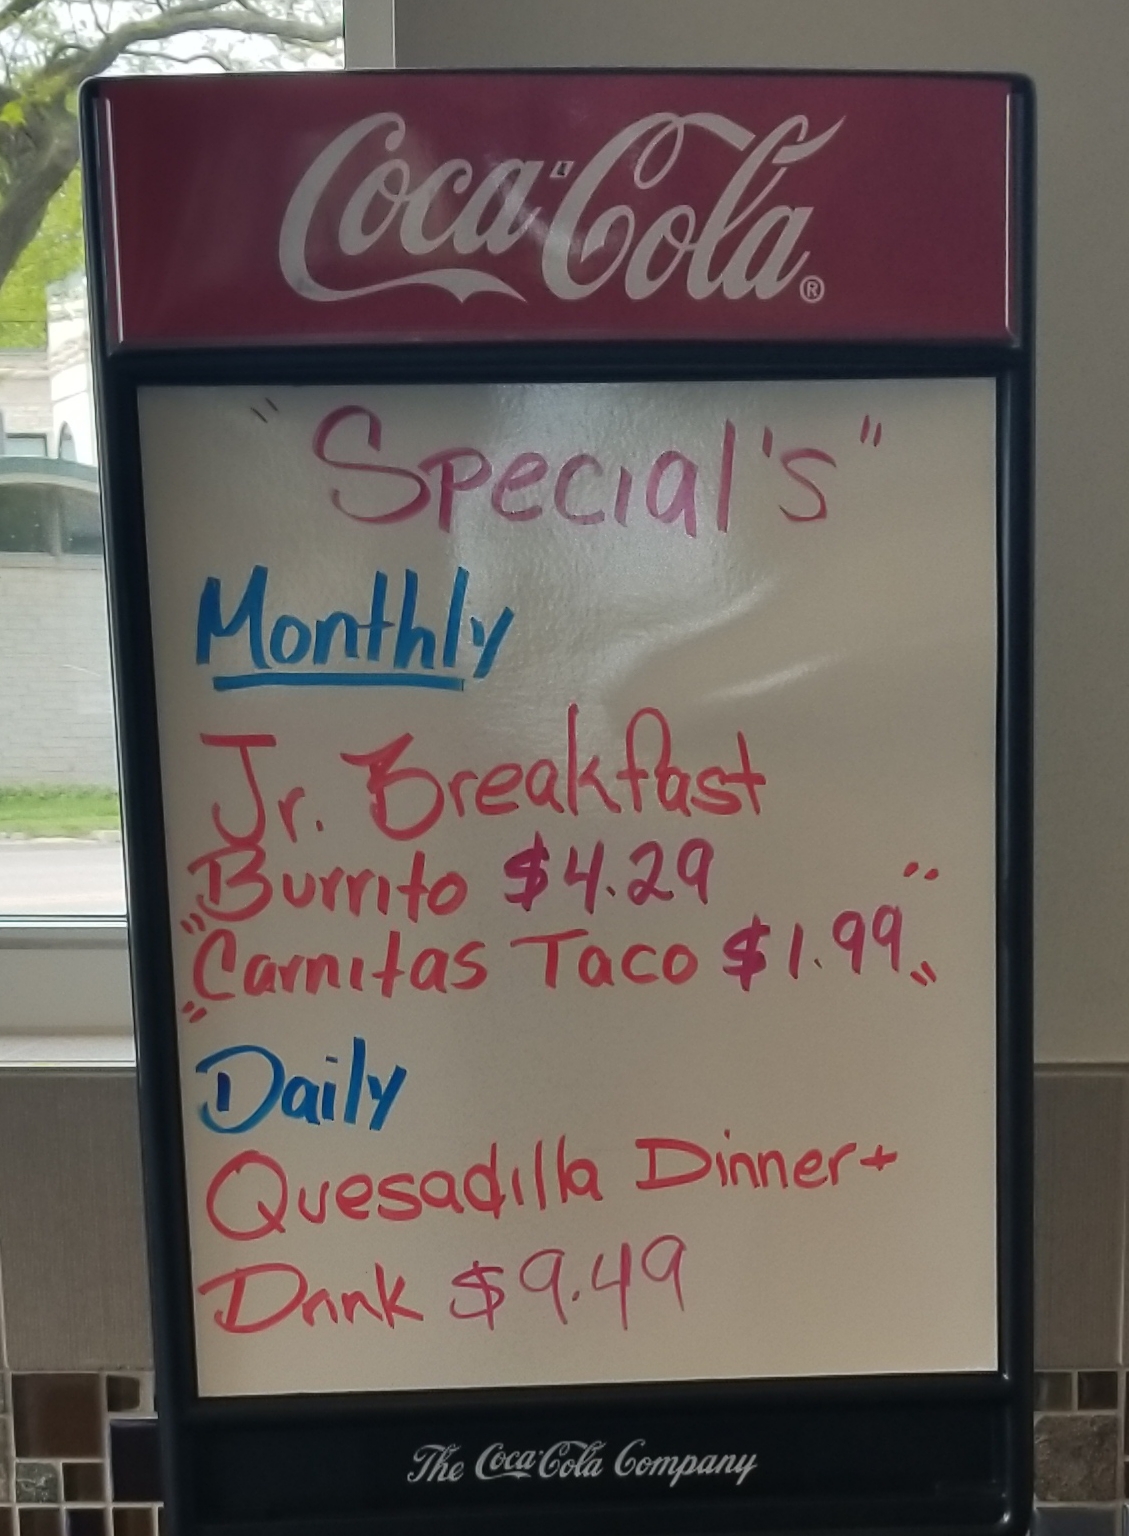 Coca-Cola®
"Special's"
Monthly
Jr. Breakfast
Burrito $4.29
"Carnitas Taco $1.99"
Daily
Quesadilla Dinner+
Drink $9.49
The Coca-Cola Company